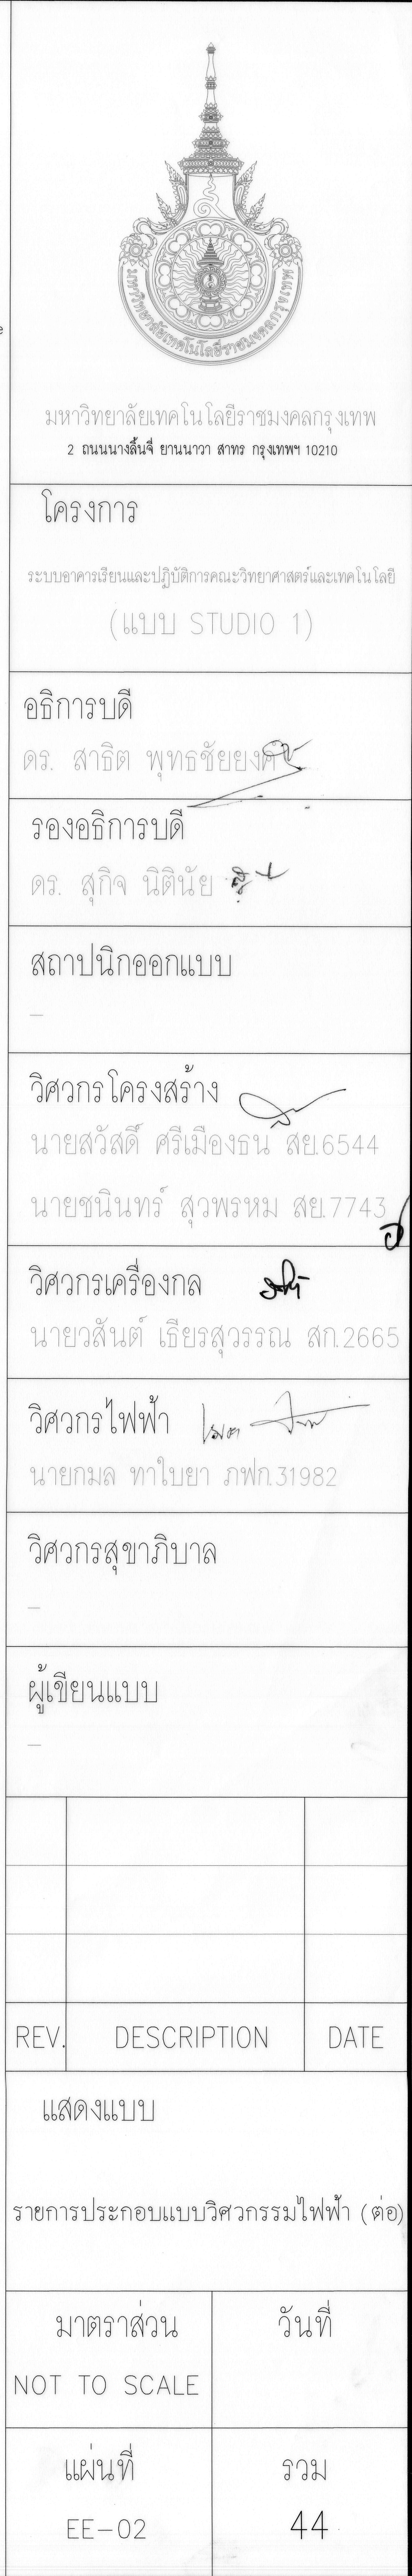 มหาวิทยาลัยเทคโนโลยีราชมงคลกรุงเทพ
มหาวิทยาลัยเทคโนโลยีราชมงคลกรุงเทพ
2 ถนนนางลิ้นจี่ ยานนาวา สาทร กรุงเทพฯ 10210
โครงการ
ระบบอาคารเรียนและปฏิบัติการคณะวิทยาศาสตร์และเทคโนโลยี
(แบบ STUDIO 1)
อธิการบดี
ดร. สาธิต พุทธชัยยงค์
รองอธิการบดี
ดร. สุกิจ นิตินัย
สถาปนิกออกแบบ
–
วิศวกรโครงสร้าง
นายสวัสดิ์ ศรีเมืองธน สย.6544
นายชนินทร์ สุวพรหม สย.7743
วิศวกรเครื่องกล
นายวสันต์ เธียรสุวรรณ สก.2665
วิศวกรไฟฟ้า
นายกมล ทาใบยา ภฟก.31982
วิศวกรสุขาภิบาล
–
ผู้เขียนแบบ
–
REV. DESCRIPTION DATE
แสดงแบบ
รายการประกอบแบบวิศวกรรมไฟฟ้า (ต่อ)
มาตราส่วน วันที่
NOT TO SCALE
แผ่นที่ รวม
EE-02 44